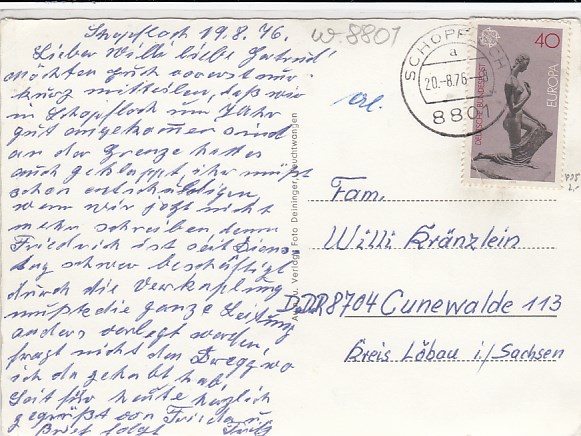 Schopfloch 19.8.76.
Lieber Willi liebe Gertrud!
möchten Euch vorerst nur
kurz mitteilen, daß wir
in Schopfloch um Uhr
gut angekommen sind
an der Grenze hat es
auch geklappt, ihr müßt
schon entschuldigen,
wenn wir jetzt nicht
mehr schreiben, denn
Friedrich ist seit Diens
tag schwer beschäftigt
durch die
mußte die ganze Leitung
anders verlegt werden,
fragt nicht den Dregg wo
ich da gehabt hab!
Seit für heute herzlich
gegrüßt von Frieda u.
Brief folgt Fritz
w 8801
erl.
SCHOPFLOCH
a
20.-8.76
8801
40
DEUTSCHE BUNDESPOST
EUROPA
Verlag Foto Deininger Feuchtwangen
Fam.
Willi Kränzlein
DDR 8704 Cunewalde 113
Kreis Löbau i/Sachsen